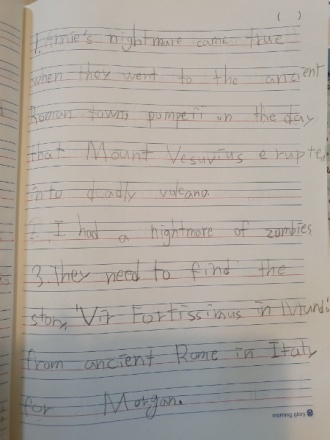 ( )
1. Annie's nightmare came true
when they went to the ancient
Roman towns pumpeii in the day
that Mount Vesuvius erupted
into deadly vulcano
2. I had a nightmare of zombies
3. They need to find the
story "Vir Fortissimus in Mundo
from ancient Rome in Italy
for Morgan.
morning glory